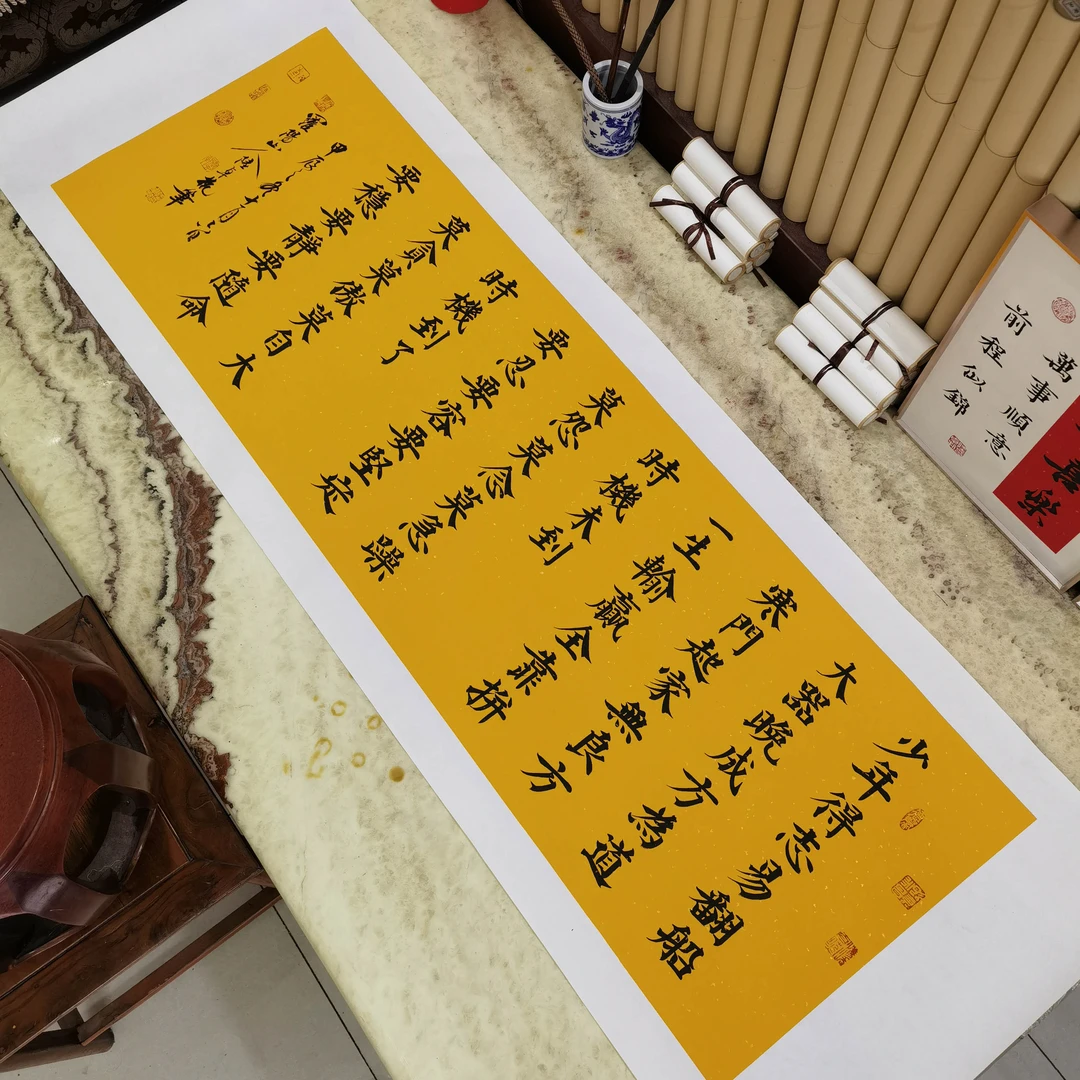 少年得志易翻船
大器晚成方為道
寒門起家無良方
一生輸贏全靠拼
時機未到
莫怨莫念莫急躁
要忍要容要堅定
時機到了
莫貪莫傲莫自大
要穩要靜要隨命
甲辰
羅陽山人
喜樂
萬事順意
前程似錦